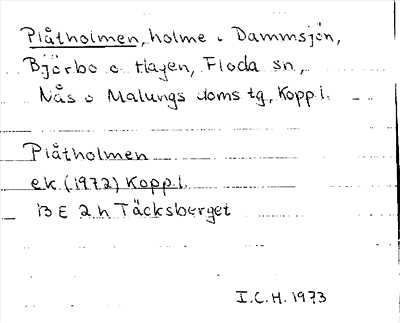 Plåtholmen, holme i Dammsjön,
Björbo o. Hagen, Floda sn,
Nås o Malungs doms tg, Kopp.l.
Plåtholmen
ek. (1972) Kopp.l.
13 E 2 h Täcksberget
I.C.H. 1973